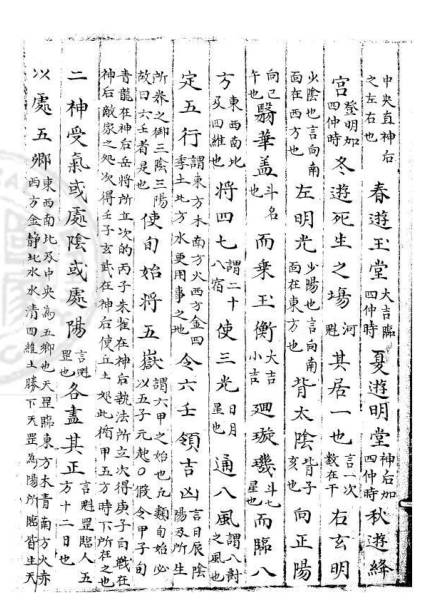 中央直神后之左右也春遊玉堂大吉臨四仲時夏遊明堂神后加四仲時秋遊絳
宮登明加四仲時冬遊死生之塲河魁其居一也言一次數在干右玄明
少陰也言向南面在西方也左明光少陽也言向南面在東方也背太陰背子亥也向正陽
向巳午也翳華盖斗名也而乘玉衡大吉小吉廻璇璣斗七星也而臨八
方東西南北及四維也將四七謂二十八宿使三光日月星也通八風謂八對之風也
定五行謂東方木南方火西方金四季土北方水更用事之地令六壬領吉凶言日辰陰陽及所生
所养之御三陰三陽故曰六壬者是也使旬始將五嶽謂六甲之始也凡類旬始必以五子元起○假令甲子旬
青龍在神后岳將所立次的丙子朱雀在神后執法所立次得庚子白戰在神后敵家之処次得壬子玄武在神后使丘土処此楯甲五方時下所在之也
二神受氣或處陰或處陽言魁罡也各盡其正言魁罡臨人五方十二日也
以處五鄉東西南北及中央為五鄉也天罡臨東方木青南方火赤西方金靜北水水清四維土滕下天罡為陽所臨皆生天